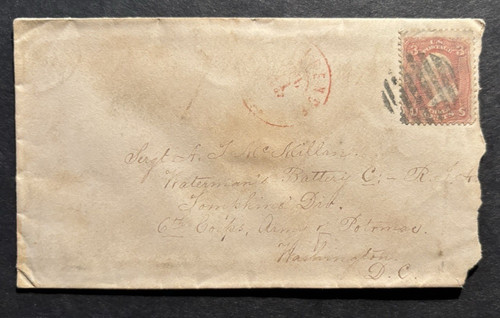 3 U.S. 3
POSTAGE
Sergt A. J. McMillan.
Waterman's Battery C. - R. I. A
Tompkins' Div.
6th Corps, Army of Potomac.
Washington.
D. C.